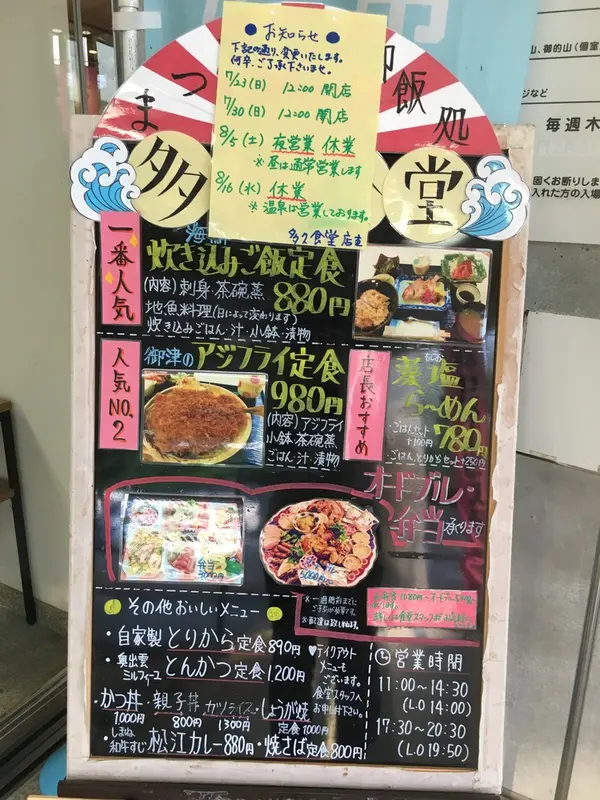 お知らせ
下記の通り、変更いたします。
何卒、ご了承下さいませ。
7/23(日) 12:00 開店
7/30(日) 12:00 開店
8/5(土) 夜営業 休業
※昼は通常営業します
8/16(水) 休業
※温泉は営業しております。
多久食堂 店主
まつ
御飯処
多
堂
、御的山(個室
ジなど
毎週木
固くお断りしま
入れた方の入場
一番人気
海鮮
炊き込みご飯定食
880円
(内容)刺身・茶碗蒸
地魚料理(日によって変わります)
炊き込みごはん・汁・小鉢・漬物
人気NO.2
御津のアジフライ定食
980円
(内容)アジフライ
小鉢・茶碗蒸
ごはん・汁・漬物
店長おすすめ
藻塩
らーめん
780円
・ごはんセット
+100円
・ごはん、とりからセット+250円
オードブル・
弁当承ります
弁当
オードブル
5000円
※一週間前までに
ご予約が必要です。
※配達は致しません。
その他おいしいメニュー
・自家製とりから定食890円
・奥出雲ミルフィーユとんかつ定食1,200円
・かつ丼1000円・親子丼800円・カツライス1300円・しょうが焼定食1000円
・しまね和牛すじ松江カレー880円・焼さば定食800円
♥テイクアウト
メニューも
ございます。
食堂スタッフへ
お申し付下さい。
営業時間
11:00~14:30
(L.O 14:00)
17:30~20:30
(L.O 19:50)